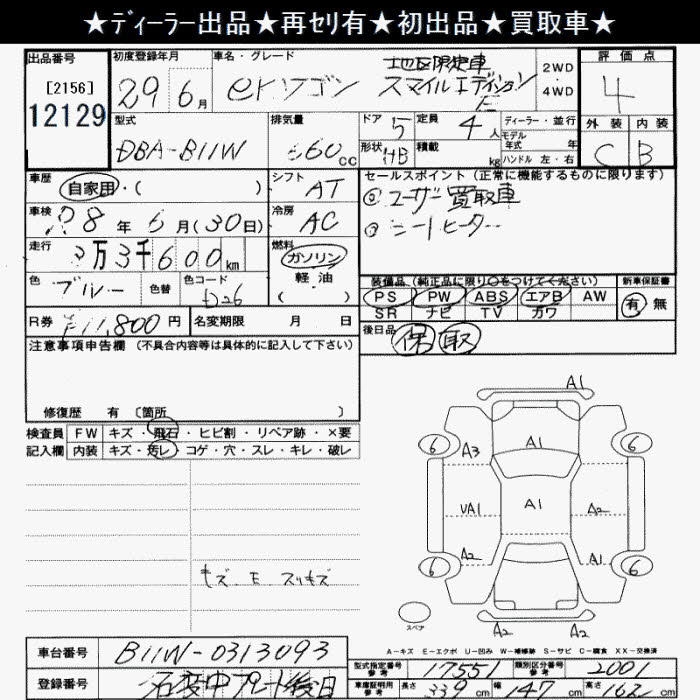 ★ディーラー出品★再セリ有★初出品★買取車★
出品番号
[2156]
12129
初度登録年月
29 6月
車名・グレード
eKワゴン
地区限定車
スマイルエディション
E
2WD
4WD
評価点
4
外装 内装
C B
型式
DBA-B11W
排気量
660cc
ドア 5
定員 4人
形状 HB
積載 kg
ディーラー・並行
モデル年式 年
ハンドル 左・右
車歴
自家用・( )
シフト
AT
車検
R8年6月(30日)
冷房
AC
走行
3万3千600km
燃料
ガソリン
軽・油
( )
色
ブルー
色替
色コード
D26
R券 ¥11,800円
名変期限 月 日
セールスポイント (正常に機能するものに限ります)
① ユーザー買取車
② シートヒーター
装備品 (純正品に限り○をつけてください)
PS PW ABS エアB AW
SR ナビ TV カワ
新車保証書
有 無
後日品
保 取
注意事項申告欄 (不具合内容等は具体的に記入して下さい)
修復歴 有 〔箇所 〕
検査員 FW キズ・飛石・ヒビ割・リペア跡・×要
記入欄 内装 キズ・汚レ・コゲ・穴・スレ・キレ・破レ
キズ E スリキズ
A1
6 A3 A1 6
UA1 A1 A2
6 A2 A1 6
スペア
A2 A2
A-キズ E-エクボ U-凹み W-補修跡 S-サビ C-腐食 XX-交換済
車台番号 B11W-0313093
登録番号 名変中プレート後日
型式指定番号 参考 17551
類別区分番号 参考 2001
車庫証明用 参考 長さ 339cm 幅 147cm 高さ 162cm